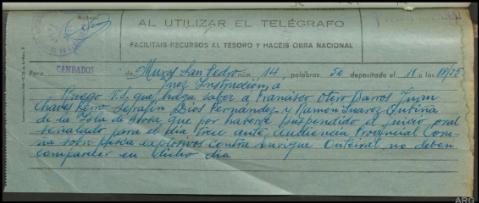 AL UTILIZAR EL TELÉGRAFO
FACILITAIS RECURSOS AL TESORO Y HACEIS OBRA NACIONAL
Para CAMBADOS de Muros San Pedro núm 14 palabras 50 depositado el 11 a las
Juez Instrucción a
Ruego V.S. que haga saber a Francisco Otero Barros Juan
Chaves Serafín Dios Fernández y Ramón Suárez
de la Isla de Arosa que por haberse suspendido el juicio oral
señalado para el día trece ante Audiencia Provincial
sobre pesca explosivos contra Enrique Outeiral no deben
comparecer en dicho día